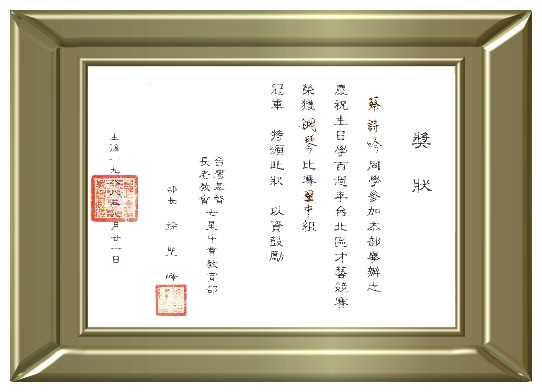 獎狀
蔡詩吟同學參加本部舉辦之
慶祝主日學百週年台北區才藝競賽
榮獲鋼琴比賽國中組
冠軍 特頒此狀 以資鼓勵
台灣基督
長老教會
七星中會教育部
部長
主後一九
月廿一日